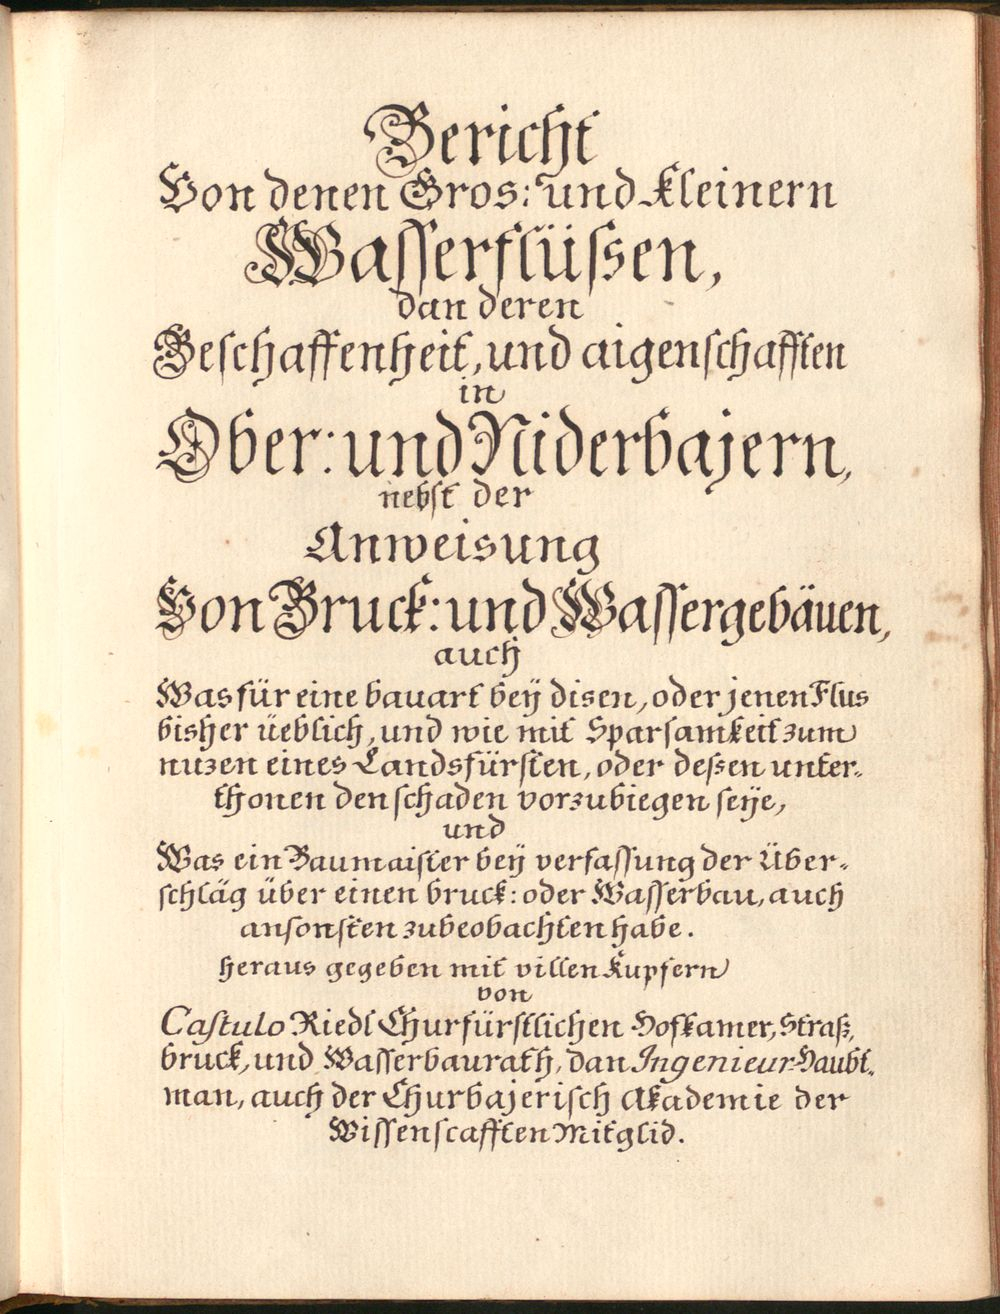 Bericht
Von denen Gros: und kleinern
Wasserflüssen,
dan deren
Beschaffenheit, und aigenschafften
in
Ober: und Niderbajern,
nebst der
Anweisung
Von Bruck: und Wassergebäuen,
auch
Was für eine bauart beÿ disen, oder jenen Flus
bisher üeblich, und wie mit Sparsamkeit zum
nuzen eines Landsfürsten, oder dessen unter-
thonen den schaden vorzubiegen seÿe,
und
Was ein Baumaister beÿ verfassung der Über-
schläg über einen bruck: oder Wasserbau, auch
ansonsten zubeobachten habe.
heraus gegeben mit villen Kupfern
von
Castulo Riedl Churfürstlichen Hofkamer, Straß,
bruck, und Wasserbaurath, dan Ingenieur-Haubt-
man, auch der Churbajerisch Akademie der
Wissenscafften Mitglid.